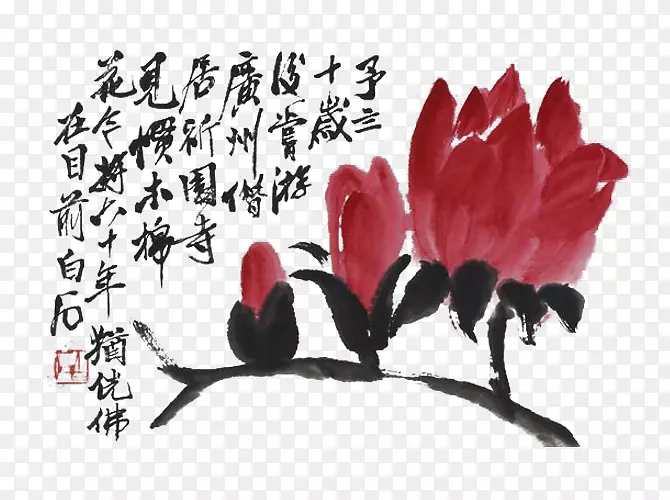 予三
十歲
後嘗游
廣州僭
居祈園寺
見慣木棉
花今將六十年猶恍佛
在目前白石